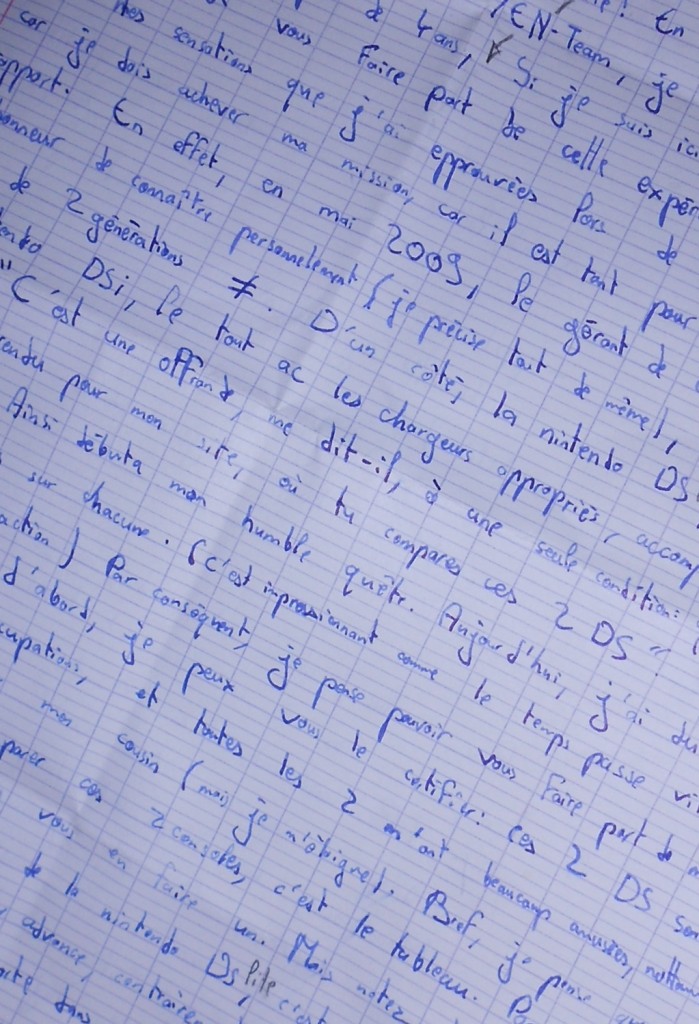 ! En
/EN-Team, je
de 4ans, Si je suis ici
vous faire part de cette expér
mes sensations que j'ai epprouvées lors de
car je dois achever ma mission, car il est tant pour
apport. En effet, en mai 2009, le gérant de
onneur de connaître personnelement (je précise tout de même),
de 2 générations ≠. D'un côté, la nintendo DS
endo DSi, le tout ac les chargeurs appropriés, accomp
"C'est une offrande, me dit-il, à une seule condition:
endu pour mon site, où tu compares ces 2 DS".
Ainsi débuta mon humble quête. Aujourd'hui, j'ai du
sur chacune. (C'est impressionnant comme le temps passe vi
action) Par conséquent, je pense pouvoir vous faire part de m
d'abord, je peux vous le certifier: ces 2 DS son
cupations, et toutes les 2 m'ont beaucoup amusées, nottam
mon cousin (mais je m'éloigne). Bref, je pense que
parer ces 2 consoles, c'est le tableau. Pa
vous en faire un. Mais notez
de la nintendo DS lite, c'est
advance, contraire
dans